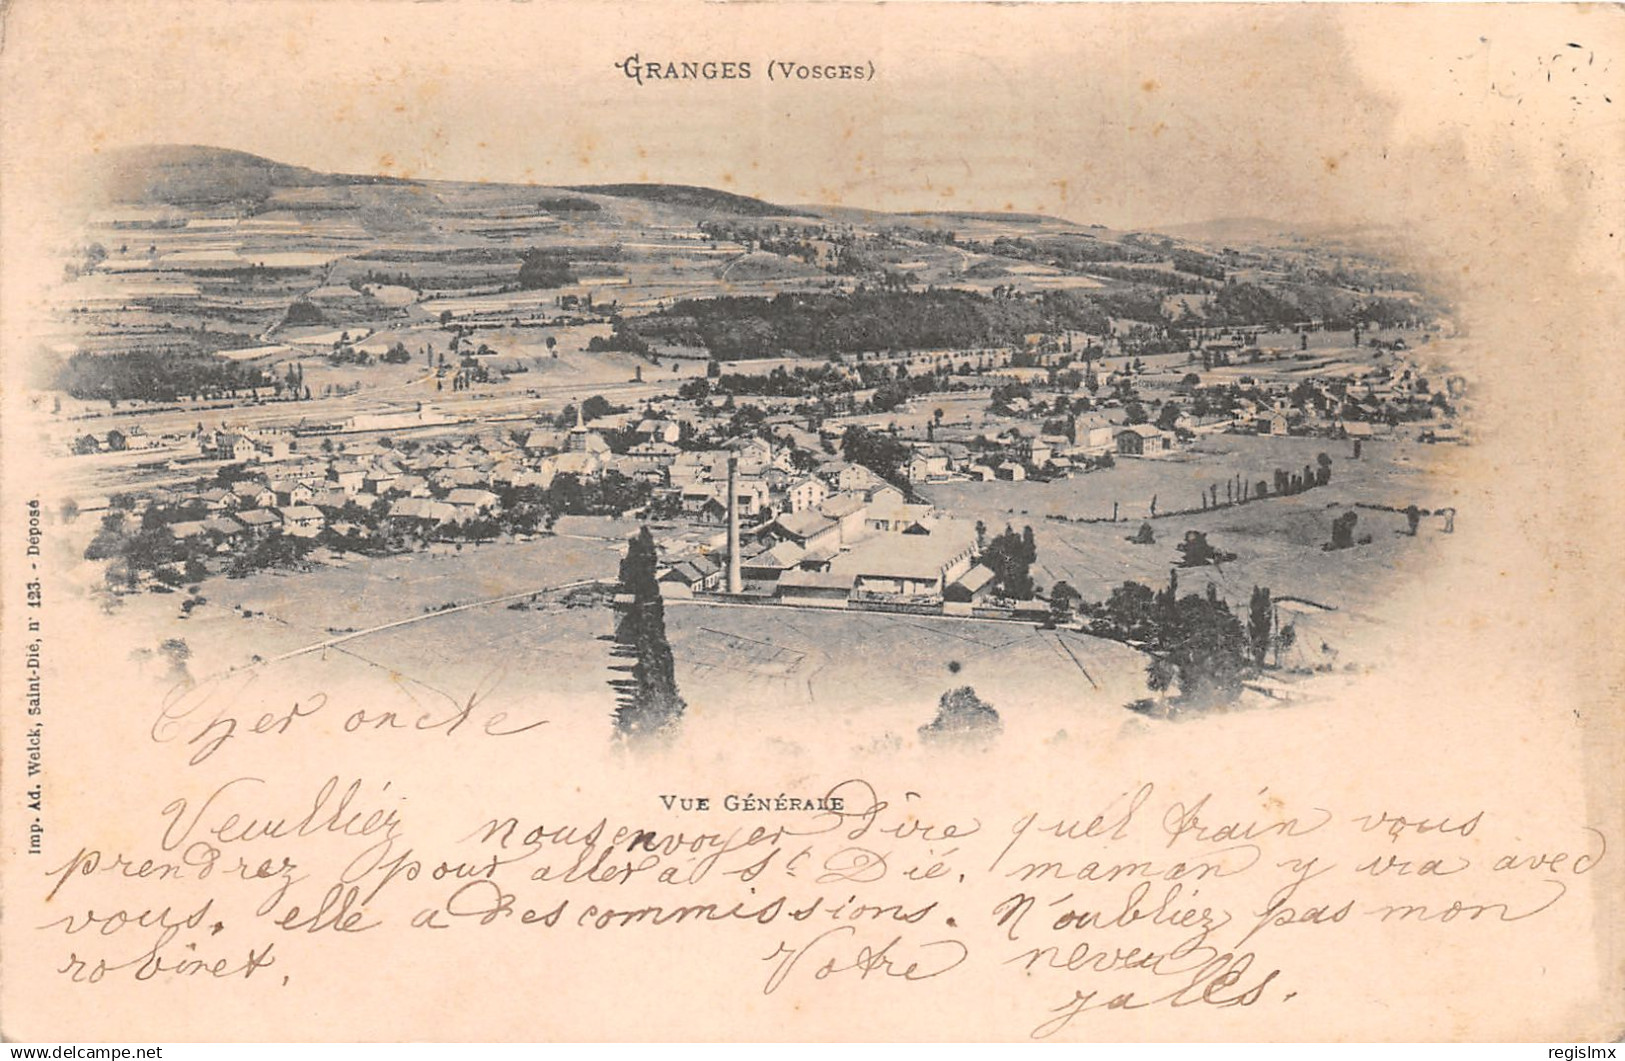 GRANGES (VOSGES)
Imp. Ad. Weick, Saint-Dié, nº 123. - Déposé
Cher oncle
VUE GÉNÉRALE
Veuilliez nous envoyer dire quel train vous
prendrez pour aller à St Dié. maman y ira avec
vous. elle a des commissions. N'oubliez pas mon
robinet.
Votre neveu
delcampe.net
regislmx